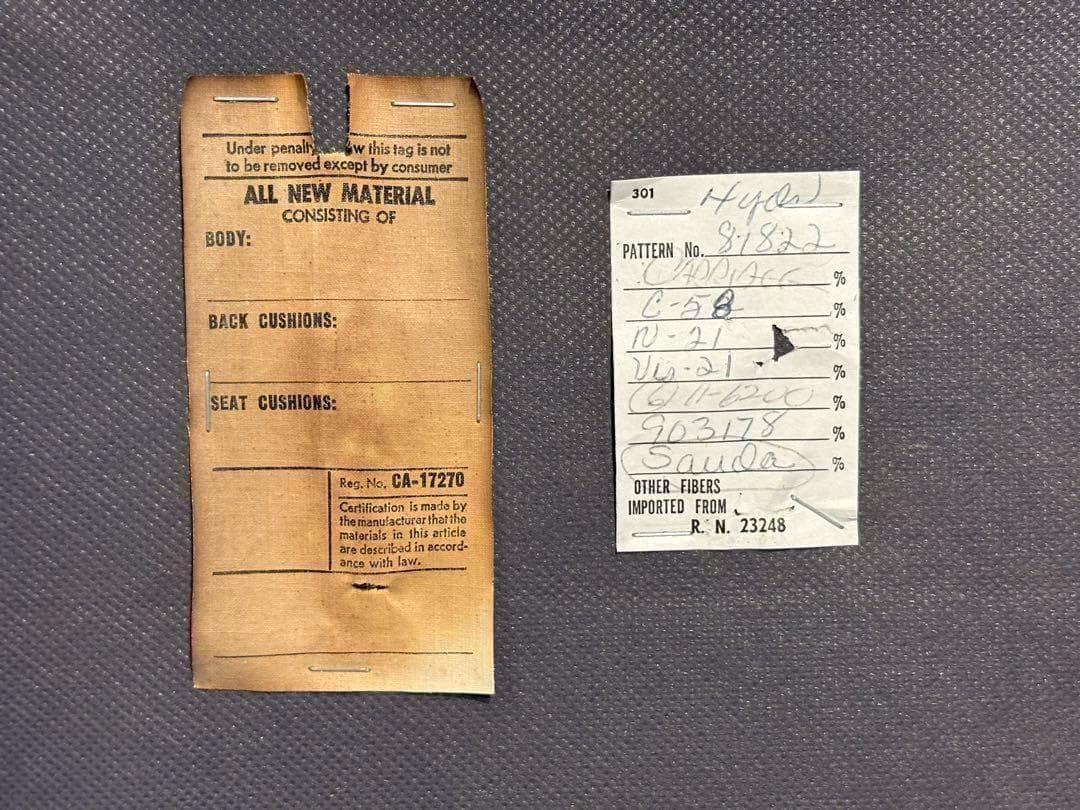 Under penalty w this tag is not
to be removed except by consumer
ALL NEW MATERIAL
CONSISTING OF
BODY:
BACK CUSHIONS:
SEAT CUSHIONS:
Reg. No. CA-17270
Certification is made by
the manufacturer that the
materials in this article
are described in accord-
ance with law.
301
PATTERN No. 81822
%
C-58 %
N-21 %
Vis-21 %
(6) 11-6200 %
903178 %
%
OTHER FIBERS
IMPORTED FROM
R. N. 23248